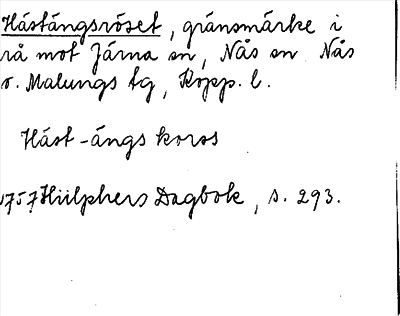 Hästängsröset, gränsmärke i
rå mot Järna sn, Nås sn Nås
o. Malungs tg, Kopp. l.
Häst-ängs korss
1757 Hülphers Dagbok, s. 293.